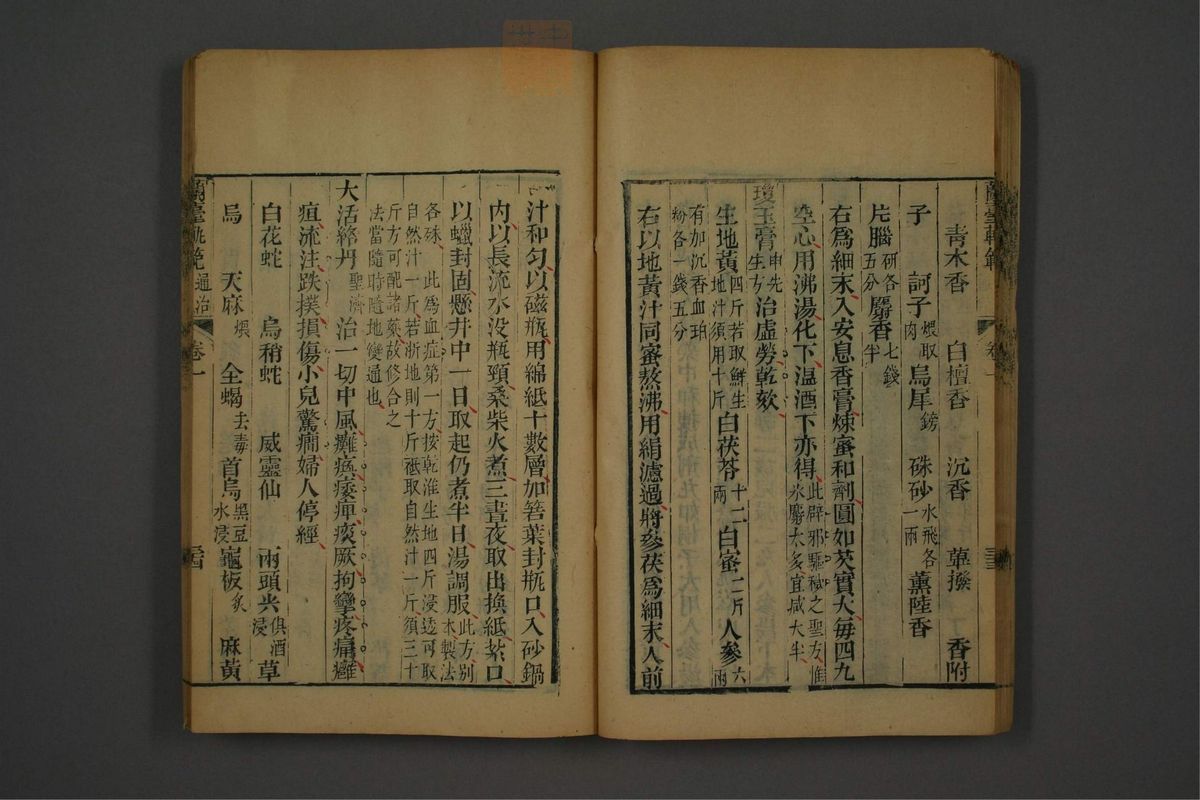 青木香　白檀香　沉香　蓽撥　香附
子　訶子煨取肉　烏犀鎊　硃砂水飛各一兩　薰陸香
片腦研各五分　麝香七錢半
右為細末入安息香膏煉蜜和劑圓如芡實大每四九
空心用沸湯化下溫酒下亦得此辟邪驅穢之聖方惟氷麝太多宜減大半
瓊玉膏申先生方治虛勞乾欬
生地黃四斤若取鮮生地汁須用十斤白茯苓十二兩白蜜二斤人參六兩
有加沉香血珀粉各一錢五分
右以地黃汁同蜜熬沸用絹濾過將參茯為細末入前
蘭臺軌範　卷一
汁和匀以磁瓶用綿紙十數層加箬葉封瓶口入砂鍋
内以長流水没瓶頸桑柴火煮三晝夜取出換紙紮口
以蠟封固懸井中一日取起仍煮半日湯調服此方别本製法
各殊　此為血症第一方按乾淮生地四斤浸透可取
自然汁一斤若浙地則十斤祗取自然汁一斤須三十
斤方可配諸藥故修合之
法當隨時隨地變通也
大活絡丹聖濟　治一切中風癱瘓痿痺痰厥拘攣疼痛癰
疽流注跌撲損傷小兒驚癎婦人停經
白花蛇　烏稍蛇　威靈仙　兩頭尖俱酒浸　草
烏　天麻煨　全蝎去毒　首烏黑豆水浸　龜板炙　麻黃
蘭臺軌範　通治　卷一